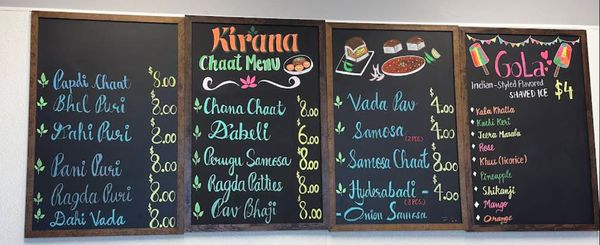 Papdi Chaat $8.00
Bhel Puri $8.00
Dahi Puri $8.00
Pani Puri $8.00
Ragda Puri $8.00
Dahi Vada $8.00
Kirana
Chaat Menu
Chana Chaat $8.00
Dabeli $6.00
Perugu Samosa $8.00
Ragda Patties $8.00
Pav Bhaji $8.00
Vada Pav $4.00
Samosa (2 PCS) $4.00
Samosa Chaat $8.00
Hyderabadi - $4.00
Onion Samosa (3 PCS)
GoLa
Indian-Styled Flavored
SHAVED ICE $4
Kala Khatta
Kachi Keri
Jeera Masala
Rose
Khus (licorice)
Pineapple
Shikanji
Mango
Orange